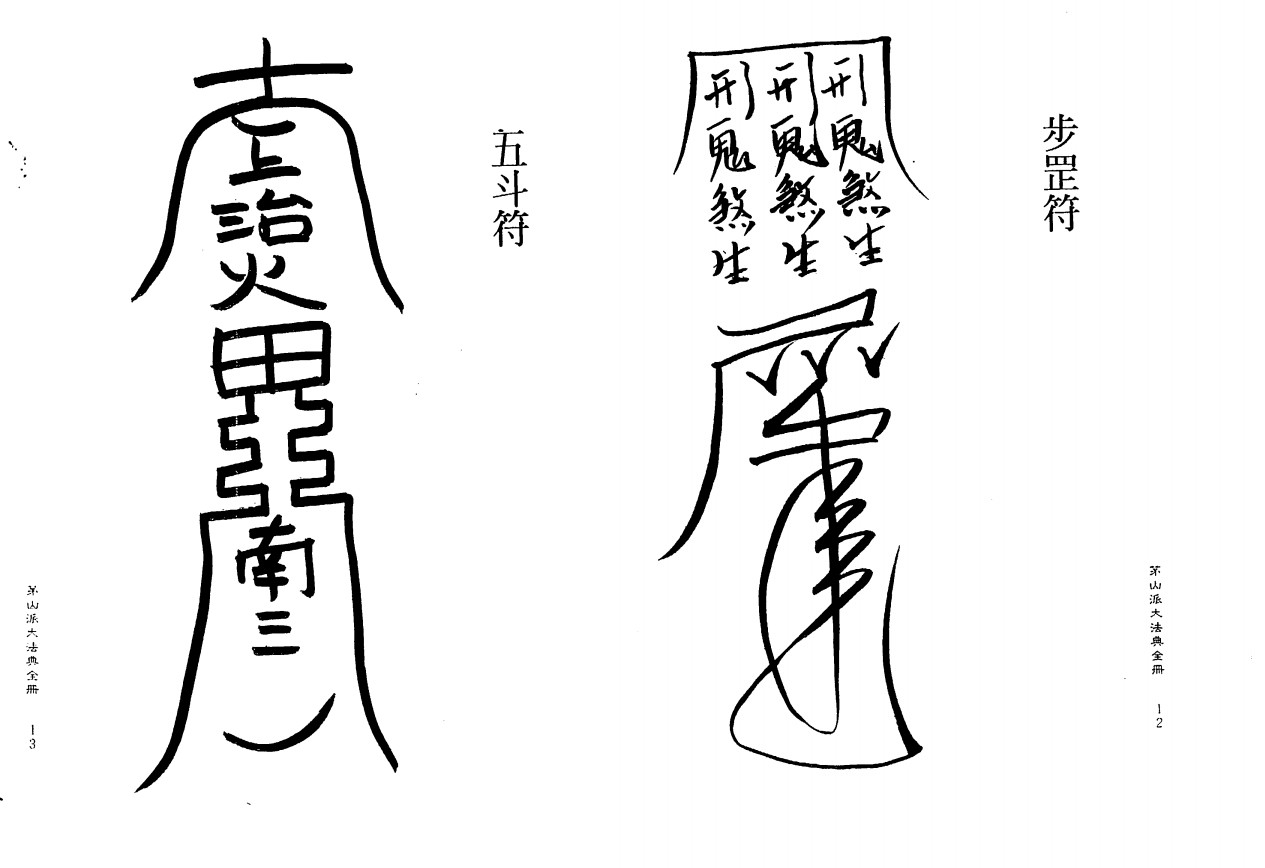 步罡符
刑鬼煞生
刑鬼煞生
刑鬼煞生
茅山派大法典全冊 12
五斗符
上
治
火
田
南
三
茅山派大法典全冊 13